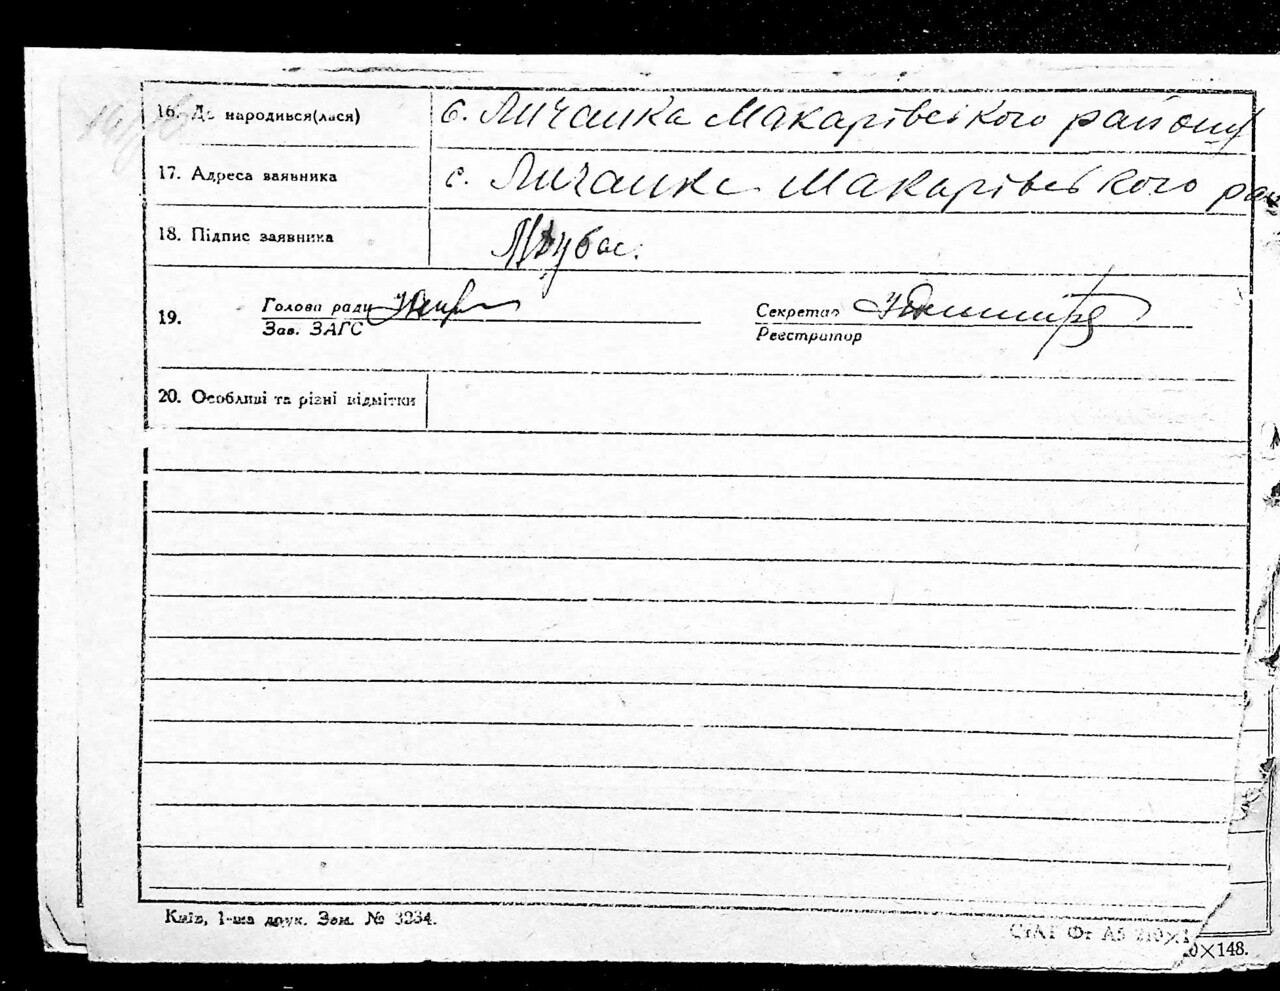 16. Де народився(лася) с. Личанка Макарівського району
17. Адреса заявника с. Личанка Макарівського рай
18. Підпис заявника
19. Голова ради Секретар
Зав. ЗАГС Реєстратор
20. Особливі та різні відмітки
Київ, 1-ша друк. Зам. № 3234.
СтАТ Фт А5 210×1
0×148.